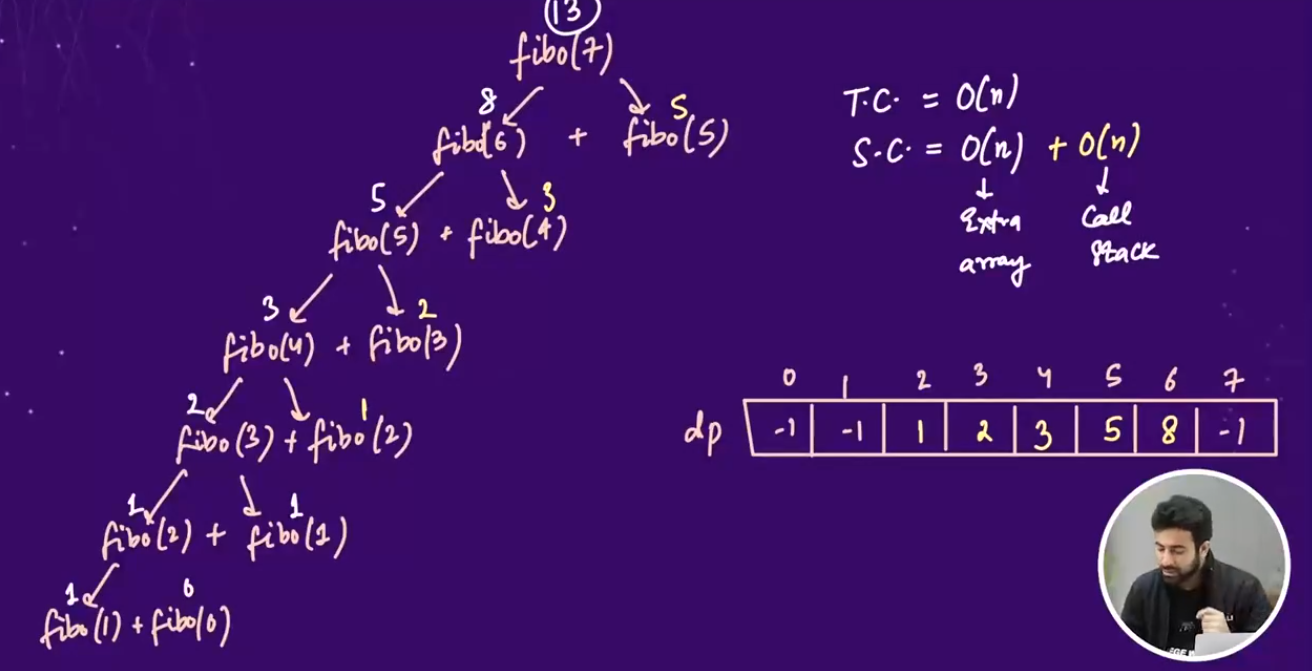 13
fibo(7)
8 5
fibo(6) + fibo(5)
5 3
fibo(5) + fibo(4)
3 2
fibo(4) + fibo(3)
2 1
fibo(3) + fibo(2)
1 1
fibo(2) + fibo(1)
1 0
fibo(1) + fibo(0)
T.C. = O(n)
S.C. = O(n) + O(n)
Extra array
Call Stack
0 1 2 3 4 5 6 7
dp -1 -1 1 2 3 5 8 -1